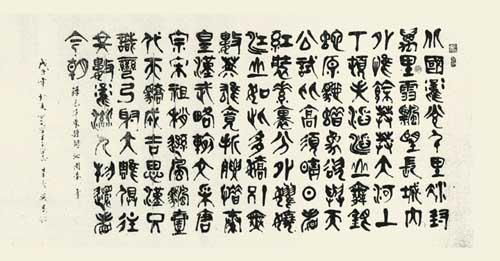 北國風光千里冰封
萬里雪飄望長城內
外惟餘莽莽大河上
下頓失滔滔山舞銀
蛇原馳蠟象欲與天
公試比高須晴日看
紅裝素裹分外妖嬈
江山如此多嬌引無
數英雄競折腰惜秦
皇漢武略輸文采唐
宗宋祖稍遜風騷一
代天驕成吉思汗只
識彎弓射大雕俱往
矣數風流人物還看
今朝
沁園春雪